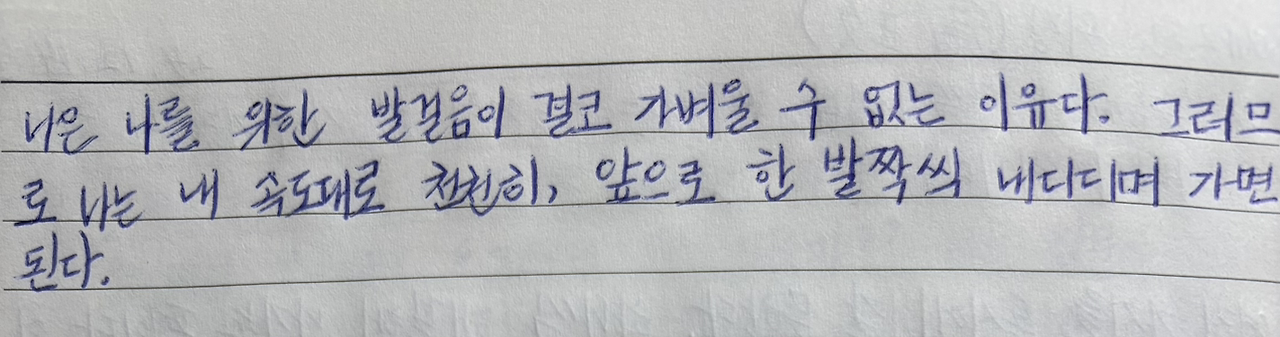 나은 나를 위한 발걸음이 결코 가벼울 수 없는 이유다. 그러므
로 나는 내 속도대로 천천히, 앞으로 한 발짝씩 내디디며 가면
된다.